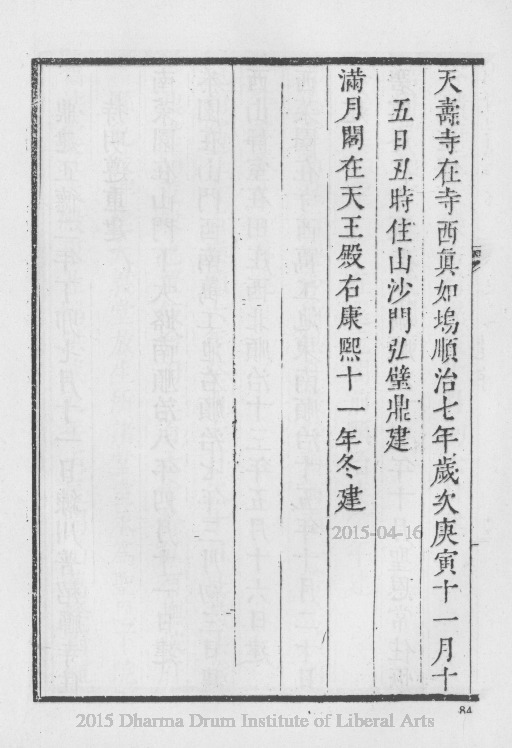 天壽寺在寺西眞如塢順治七年歲次庚寅十一月十
五日丑時住山沙門弘璧鼎建
滿月閣在天王殿右康熙十一年冬建
2015-04-16
84
2015 Dharma Drum Institute of Liberal Arts